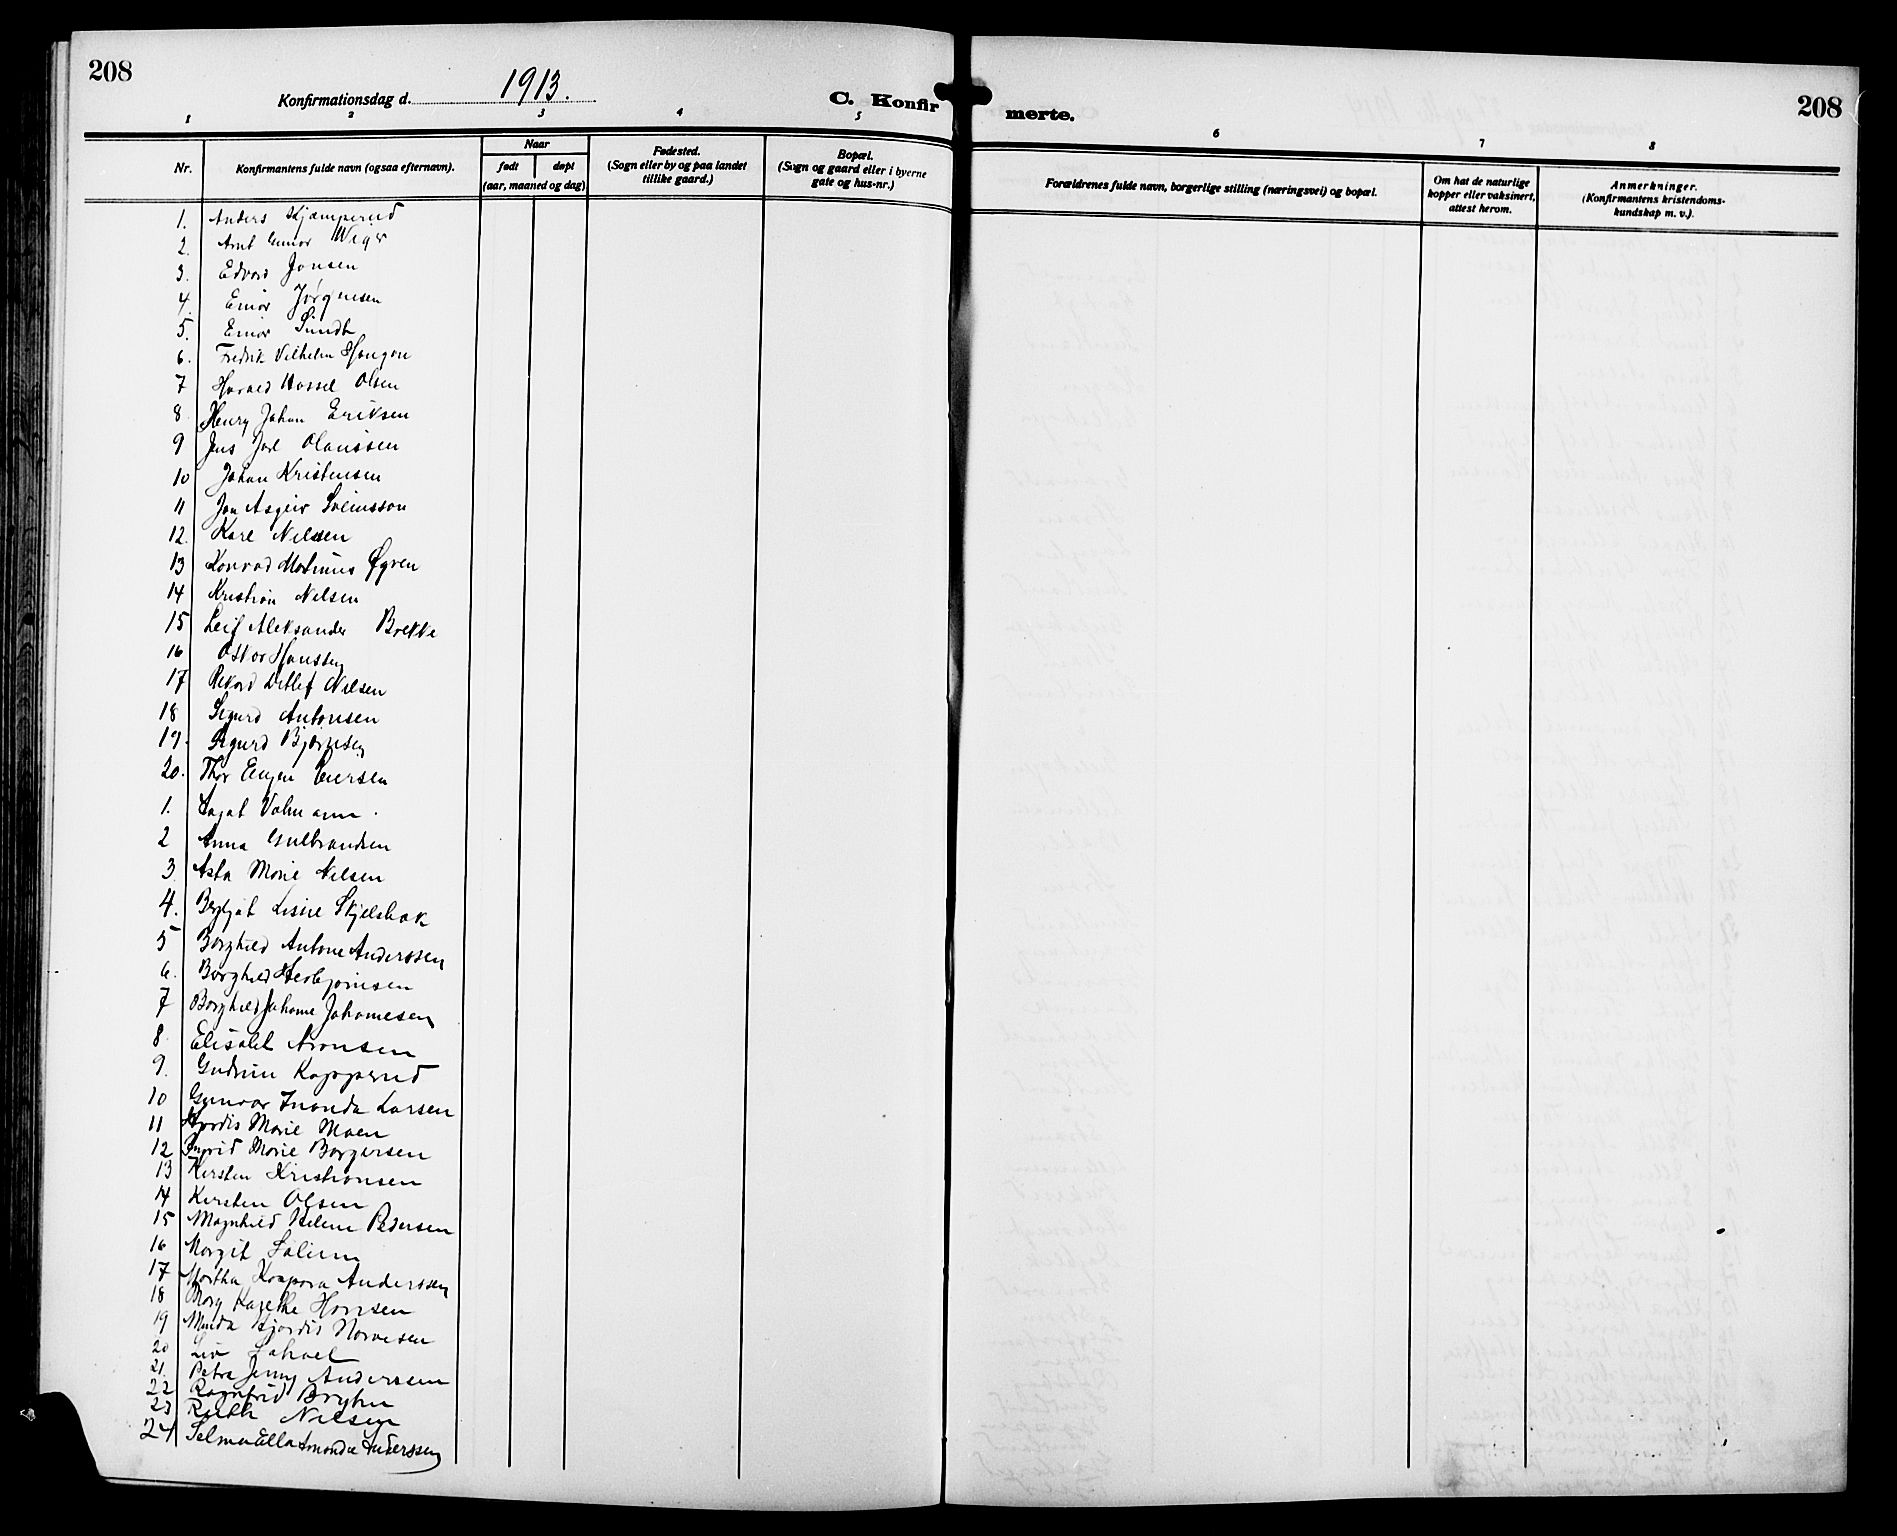 208
Konfirmationsdag d. 1913.
C. Konfir
merte.
208
1 2 3 4 5
6 7 8
Nr.
Konfirmantens fulde navn (ogsaa efternavn).
Naar
født døpt
(aar, maaned og dag)
Fødested.
(Sogn eller by og paa landet
tillike gaard.)
Bopæl.
(Sogn og gaard eller i byerne
gate og hus-nr.)
Forældrenes fulde navn, borgerlige stilling (næringsvei) og bopæl.
Om hat de naturlige
kopper eller vaksinert,
attest herom.
Anmerkninger.
(Konfirmantens kristendoms-
kundskap m. v.).
1. Anders Kjæmperud
2. Arnt Gunnar Wiger
3. Edvard Jansen
4. Einar Jørgensen
5. Einar Sundt
6. Fredrik Vilhelm Haugan
7 Harald Hassel Olsen
8 Henry Johan Eriksen
9 Jens Jarl Olaussen
10 Johan Kristensen
11 Jon Asgeir
12. Karl Nilsen
13 Konrad Martinius Øgren
14 Kristian Nilsen
15 Leif Aleksander Brekke
16 Oskar Hanssen
17 Rikard Detlef Nilsen
18 Sigurd Antonsen
19. Sigurd Bjørnsen
20. Thor Eugen Iversen
1. Valmann.
2 Anna Gulbrandsen
3 Asta Marie Nilsen
4. Bergljot Skjelsbæk
5 Borghild Antone Anderssen
6. Borghild
7 Borghild Johanne Johannesen
8. Elisabet Aronsen
9. Gudrun Kopperud
10 Gunvor Larsen
11 Hjørdis Marie Moen
12 Ingrid Marie Borgersen
13 Kirsten Kristiansen
14 Kirsten Olsen
15 Magnhild Helene Pedersen
16 Margit
17 Martha Anderssen
18 Mary Hansen
19 Minda Hjørdis
20 Liv
21. Petra Jenny Anderssen
22 Ragnfrid Bryhn
23 Ruth Nilsen
24 Selma Ella Amanda Anderssen